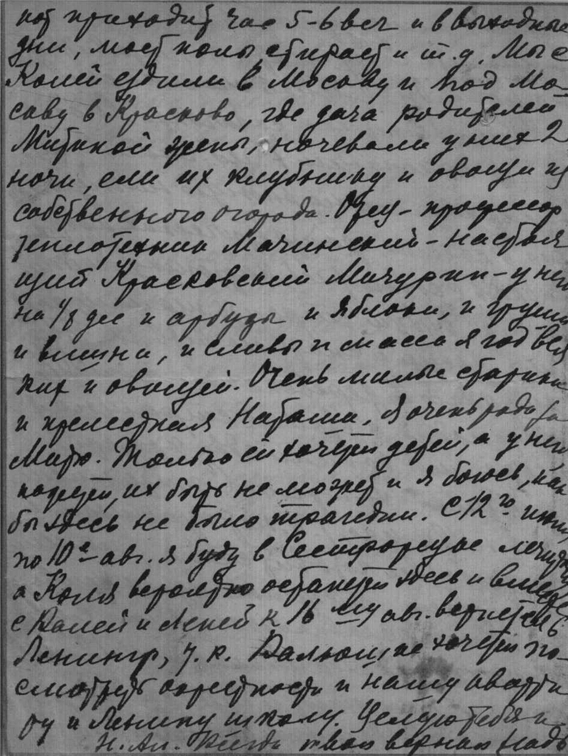 приходит час 5-6 веч и в выходные
дни, моет полы стирает и т.д. Мы с
Колей ездили в Москву и под Мо-
скву в Красково, где дача родителей
Митиной жены, ночевали у них 2
ночи, ели их клубнику и овощи из
собственного огорода. Отец - профессор
теплотехник Мачинский - настоя
щий Красковский Мичурин - у него
на 1/8 и арбузы и яблоки, и груши
и вишни, и сливы и масса ягод вся
ких и овощей. Очень милые старики
и прелестная Наташа, я очень рада за
Митю. Только ей хочется детей, а у неё
их быть не может и я боюсь, как
бы здесь не было трагедии. С 12го
по 10е авг. я буду в Сестрорецке
а Коля вероятно останется здесь и вместе
с Валей и Леней к 16му авг. вернется в
Ленингр, т.к. хочется по
смотреть окрестности и нашу кварти
ру и Ленину школу. Целую тебя и
Н. Ал. твоя верная Надя